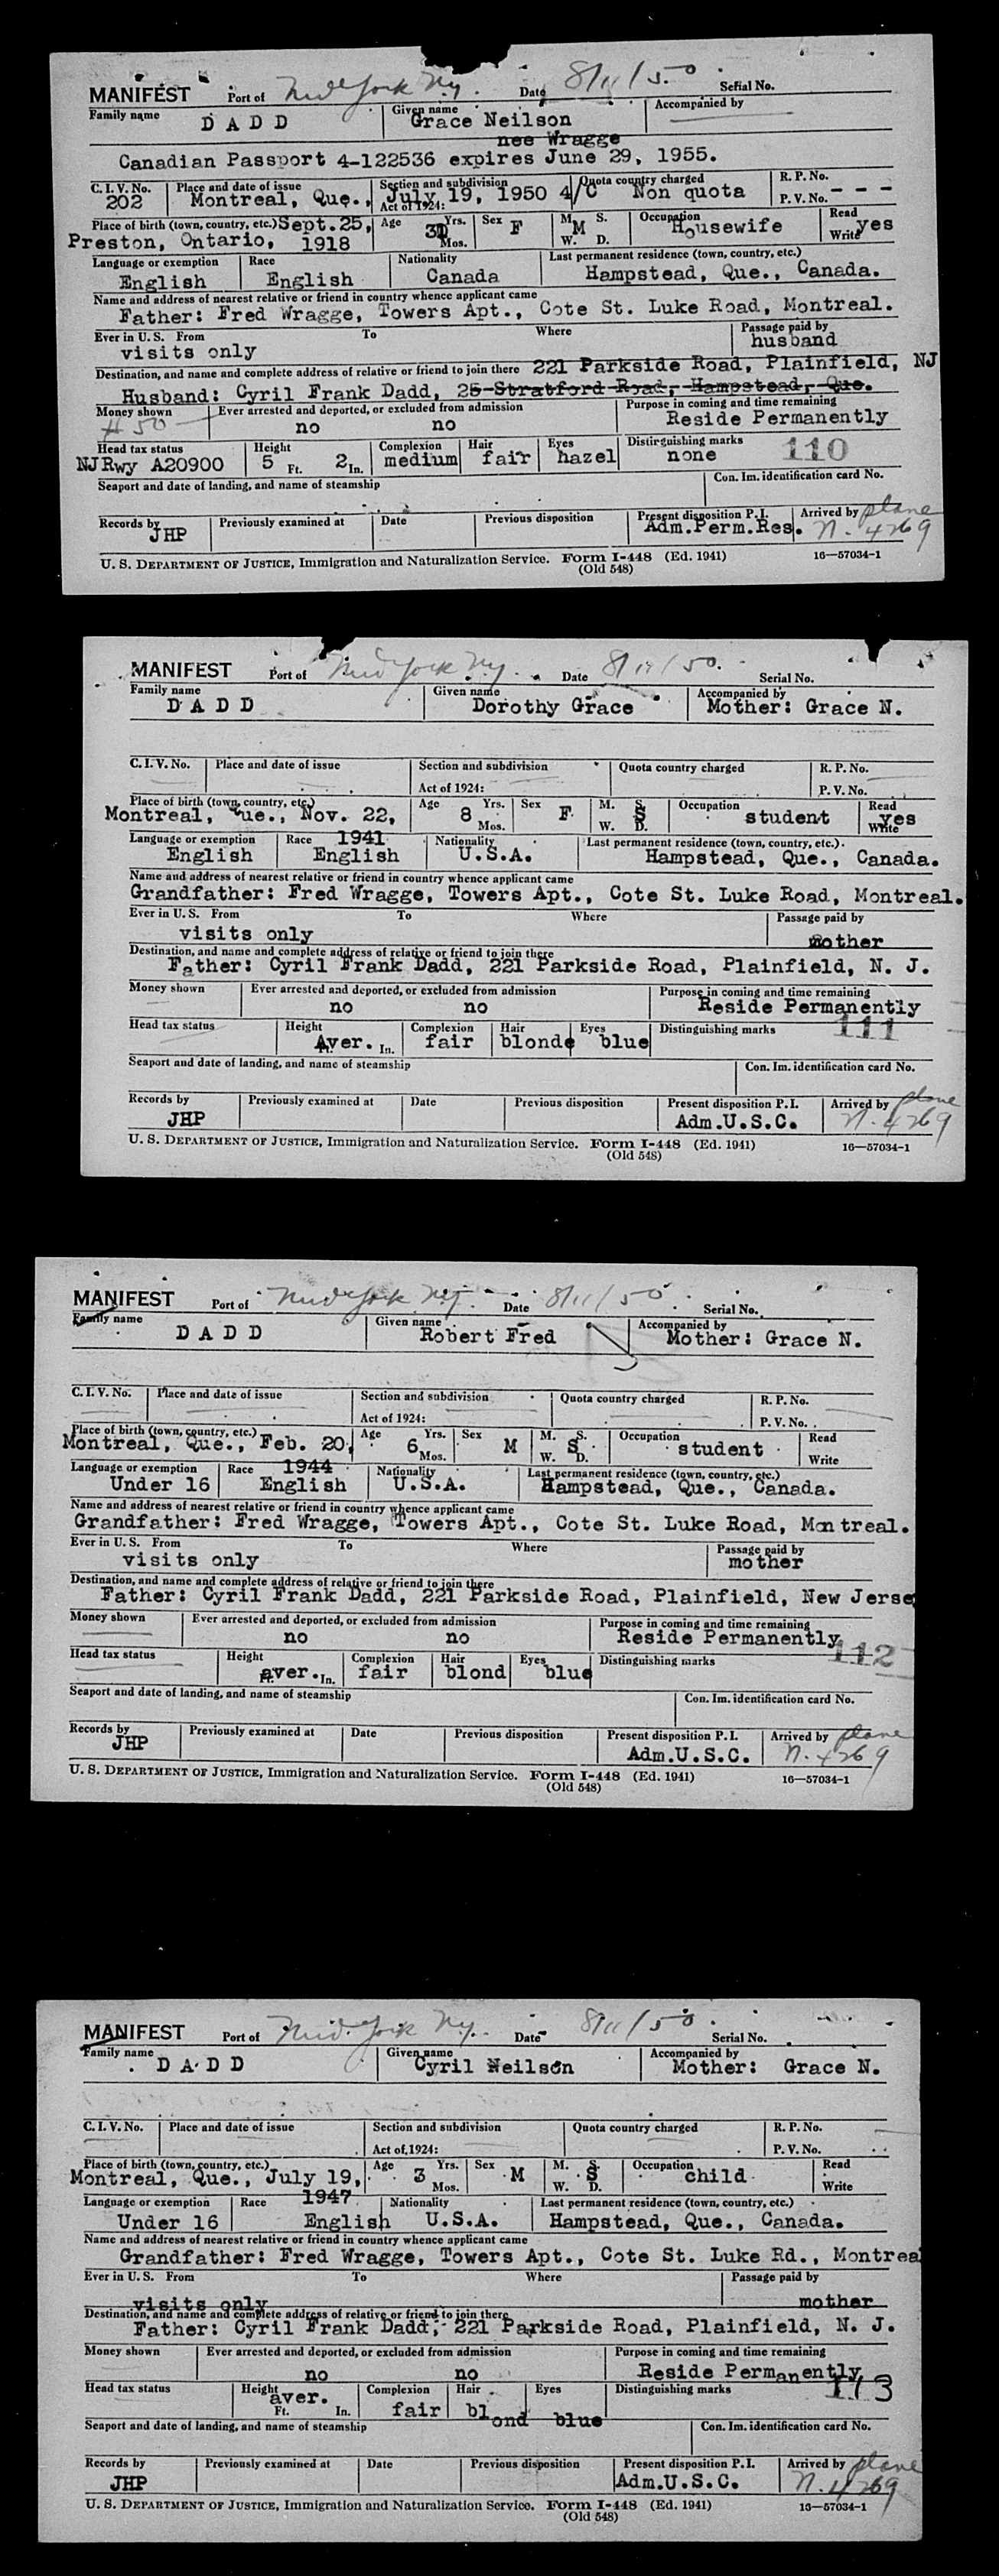 MANIFEST Port of New York Ny. Date 8/11/50 Serial No.
Family name Given name Accompanied by
D A D D Grace Neilson
nee Wragge
Canadian Passport 4-122536 expires June 29, 1955.
C. I. V. No. Place and date of issue Section and subdivision Quota country charged R. P. No.
202 Montreal, Que., July 19, 1950 4/C Non quota - - -
Act of 1924: P. V. No.
Place of birth (town, country, etc.) Sept. 25, Age Yrs. Sex F M. S. Occupation Read
Preston, Ontario, 1918 Mos. M W. D. Housewife Write yes
Language or exemption Race Nationality Last permanent residence (town, country, etc.)
English English Canada Hampstead, Que., Canada.
Name and address of nearest relative or friend in country whence applicant came
Father: Fred Wragge, Towers Apt., Cote St. Luke Road, Montreal.
Ever in U. S. From To Where Passage paid by
visits only husband
Destination, and name and complete address of relative or friend to join there 221 Parkside Road, Plainfield, NJ
Husband: Cyril Frank Dadd, 25 Stratford Road, Hampstead, Que.
Money shown Ever arrested and deported, or excluded from admission Purpose in coming and time remaining
50 no no Reside Permanently
Head tax status Height Complexion Hair Eyes Distinguishing marks 110
NJRwy A20900 5 Ft. 2 In. medium fair hazel none
Seaport and date of landing, and name of steamship Con. Im. identification card No.
Records by Previously examined at Date Previous disposition Present disposition P. I. Arrived by plane
JHP Adm.Perm.Res. n. 4269
U. S. DEPARTMENT OF JUSTICE, Immigration and Naturalization Service. Form I-448 (Ed. 1941) 16—57034-1
(Old 548)
MANIFEST Port of New York Ny. Date 8/11/50. Serial No.
Family name Given name Accompanied by
D A D D Dorothy Grace Mother: Grace N.
C. I. V. No. Place and date of issue Section and subdivision Quota country charged R. P. No.
Act of 1924: P. V. No.
Place of birth (town, country, etc.) Age Yrs. Sex M. S. Occupation Read
Montreal, Que., Nov. 22, 8 Mos. F W. D. S student Write yes
Language or exemption Race 1941 Nationality Last permanent residence (town, country, etc.)
English English U.S.A. Hampstead, Que., Canada.
Name and address of nearest relative or friend in country whence applicant came
Grandfather: Fred Wragge, Towers Apt., Cote St. Luke Road, Montreal.
Ever in U. S. From To Where Passage paid by
visits only mother
Destination, and name and complete address of relative or friend to join there
Father: Cyril Frank Dadd, 221 Parkside Road, Plainfield, N. J.
Money shown Ever arrested and deported, or excluded from admission Purpose in coming and time remaining
no no Reside Permanently
Head tax status Height Complexion Hair Eyes Distinguishing marks 111
Aver. In. fair blonde blue
Seaport and date of landing, and name of steamship Con. Im. identification card No.
Records by Previously examined at Date Previous disposition Present disposition P. I. Arrived by plane
JHP Adm.U.S.C. n. 4269
U. S. DEPARTMENT OF JUSTICE, Immigration and Naturalization Service. Form I-448 (Ed. 1941) 16—57034-1
(Old 548)
MANIFEST Port of New York Ny. Date 8/11/50 Serial No.
Family name Given name Accompanied by
D A D D Robert Fred Mother: Grace N.
C. I. V. No. Place and date of issue Section and subdivision Quota country charged R. P. No.
Act of 1924: P. V. No.
Place of birth (town, country, etc.) Age Yrs. Sex M. S. Occupation Read
Montreal, Que., Feb. 20, 6 Mos. M W. D. S student Write
Language or exemption Race 1944 Nationality Last permanent residence (town, country, etc.)
Under 16 English U.S.A. Hampstead, Que., Canada.
Name and address of nearest relative or friend in country whence applicant came
Grandfather: Fred Wragge, Towers Apt., Cote St. Luke Road, Montreal.
Ever in U. S. From To Where Passage paid by
visits only mother
Destination, and name and complete address of relative or friend to join there
Father: Cyril Frank Dadd, 221 Parkside Road, Plainfield, New Jerse
Money shown Ever arrested and deported, or excluded from admission Purpose in coming and time remaining
no no Reside Permanently
Head tax status Height Complexion Hair Eyes Distinguishing marks 112
aver. In. fair blond blue
Seaport and date of landing, and name of steamship Con. Im. identification card No.
Records by Previously examined at Date Previous disposition Present disposition P. I. Arrived by plane
JHP Adm.U.S.C. n. 4269
U. S. DEPARTMENT OF JUSTICE, Immigration and Naturalization Service. Form I-448 (Ed. 1941) 16—57034-1
(Old 548)
MANIFEST Port of New York Ny. Date 8/11/50 Serial No.
Family name Given name Accompanied by
D A D D Cyril Neilson Mother: Grace N.
C. I. V. No. Place and date of issue Section and subdivision Quota country charged R. P. No.
Act of 1924: P. V. No.
Place of birth (town, country, etc.) Age Yrs. Sex M. S. Occupation Read
Montreal, Que., July 19, 3 Mos. M W. D. S child Write
Language or exemption Race 1947 Nationality Last permanent residence (town, country, etc.)
Under 16 English U.S.A. Hampstead, Que., Canada.
Name and address of nearest relative or friend in country whence applicant came
Grandfather: Fred Wragge, Towers Apt., Cote St. Luke Rd., Montrea
Ever in U. S. From To Where Passage paid by
visits only mother
Destination, and name and complete address of relative or friend to join there
Father: Cyril Frank Dadd, 221 Parkside Road, Plainfield, N. J.
Money shown Ever arrested and deported, or excluded from admission Purpose in coming and time remaining
no no Reside Permanently
Head tax status Height aver. Complexion Hair Eyes Distinguishing marks 113
Ft. In. fair blond blue
Seaport and date of landing, and name of steamship Con. Im. identification card No.
Records by Previously examined at Date Previous disposition Present disposition P. I. Arrived by plane
JHP Adm.U.S.C. n. 4269
U. S. DEPARTMENT OF JUSTICE, Immigration and Naturalization Service. Form I-448 (Ed. 1941) 16—57034-1
(Old 548)